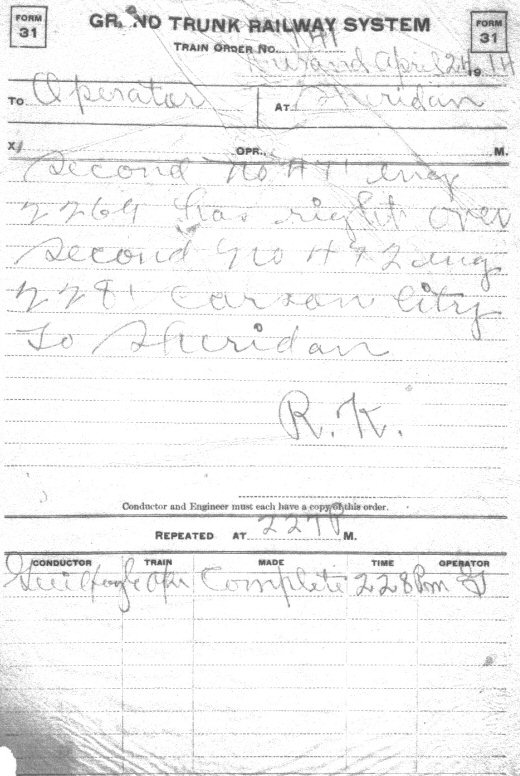 FORM 31
GRAND TRUNK RAILWAY SYSTEM
FORM 31
TRAIN ORDER NO.
Durand April 24 1914
TO Operator AT Sheridan
X OPR. M.
Second No 471 eng
2269 has right over
Second No 472 eng
2281 Carson City
To Sheridan
R.K.
Conductor and Engineer must each have a copy of this order.
REPEATED AT 227P M.
CONDUCTOR TRAIN MADE TIME OPERATOR
Opr Complete 228 Pm